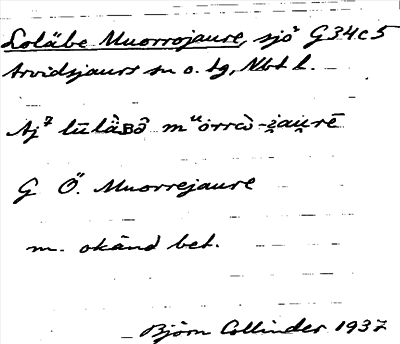 Loläbe Muorrojaure, sjö G34c5
Arvidsjaurs sn o. tg, Nbt l.
Aj⁷ lūlàʙȯ̂ mᵘȯrrὼ-ʒ̥au̯rē
G Ö. Muorrejaure
m. okänd bet.
Björn Collinder 1937